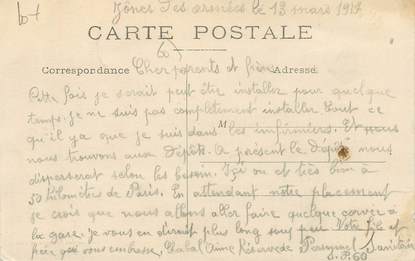 Zônes des armées le 13 mars 1917
CARTE POSTALE
Correspondance Adresse
Cher parents et frère
Cette fois je serait peut être installer pour quelque
temps. je ne suis pas completement installer tout ce
qu'il ya que je suis dans les infirmiers. Et nous
M
nous trouvons aux Dépôts. A présent le Dépôt nous
disperserat selon les besoin. Izi on et très bien à
50 kilomètres de Paris. En attendant notre placement
je crois que nous allons aller faire quelque corvée à
la gare. je vous en dirait plus long sous peu Votre fils et
frère qui vous embrasse, Réserve de Personnel Sanitaire
S.P.60